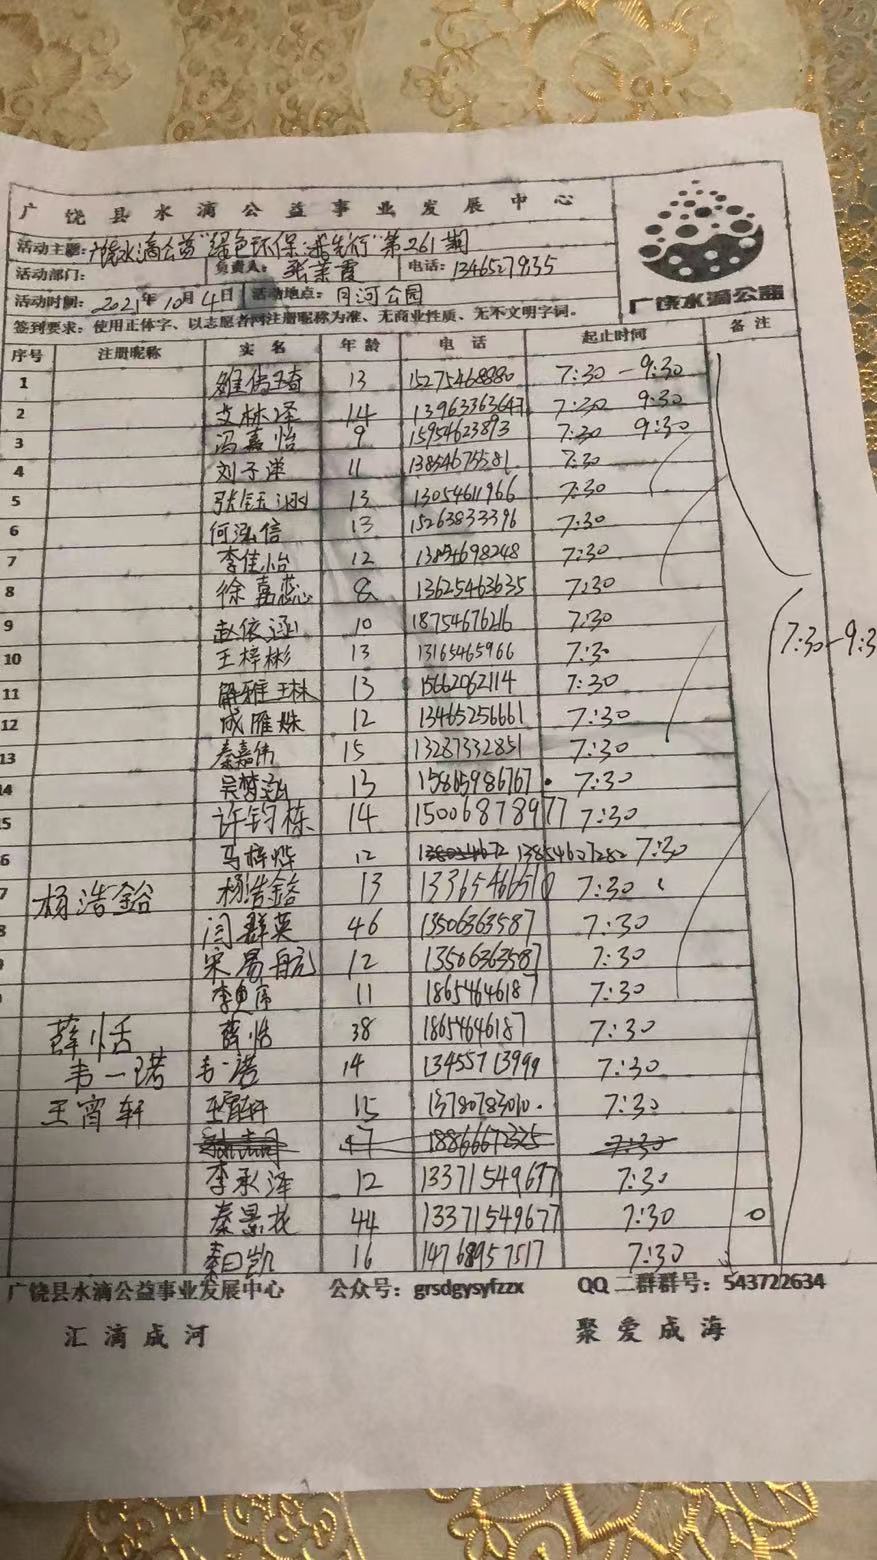 广饶县水滴公益事业发展中心
广饶水滴公益
活动主题:广饶水滴公益"绿色环保 先行"第261期
活动部门: 负责人: 张荣霞 电话: 13465279135
活动时间: 2021年10月4日 活动地点: 月河公园
签到要求:使用正体字、以志愿者网注册昵称为准、无商业性质、无不文明字词。
序号 注册昵称 实名 年龄 电话 起止时间 备注
1 13 15275468880 7:30-9:30
2 艾林泽 14 13963363647 7:30 9:30
3 冯嘉怡 9 15954623893 7:30 9:30
4 刘子洋 11 13854675581 7:30
5 张钰 13 13054611966 7:30
6 何泓信 13 15263833396 7:30
7 李佳怡 12 13854698248 7:30
8 徐嘉蕊 8 13625463635 7:30
9 赵依涵 10 18754676216 7:30 7:30-9:3
10 王梓彬 13 13165465966 7:30
11 解雅琳 13 15662062114 7:30
12 成雁姝 12 13465256661 7:30
13 秦嘉伟 15 13287332851 7:30
14 吴梦涵 13 15865986767 7:30
15 许钧栋 14 15006878977 7:30
6 马梓烨 12 13854607282 7:30
7 杨浩鎔 杨浩鎔 13 7:30
8 闫群英 46 13506363587 7:30
宋易航 12 13506363587 7:30
李 11 18654646187 7:30
薛恬 薛恬 38 18654646187 7:30
韦一诺 韦一诺 14 13455713999 7:30
王宵轩 王宵轩 15 13780783010. 7:30
47 18866672325 7:30
李承泽 12 13371549677 7:30
秦景花 44 13371549677 7:30 0
秦日凯 16 14768957517 7:30
广饶县水滴公益事业发展中心 公众号:grsdgysyfzzx QQ二群群号:543722634
汇滴成河 聚爱成海